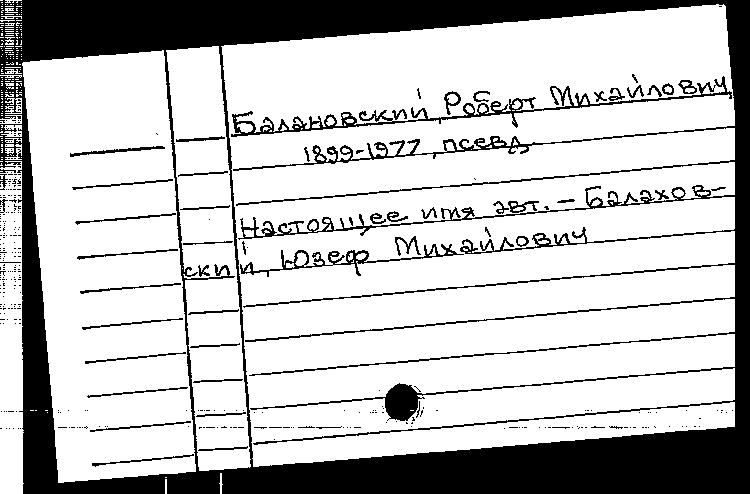 Балановский, Роберт Михайлович,
1899-1977, псевд.
Настоящее имя авт. – Балахов-
ский, Юзеф Михайлович